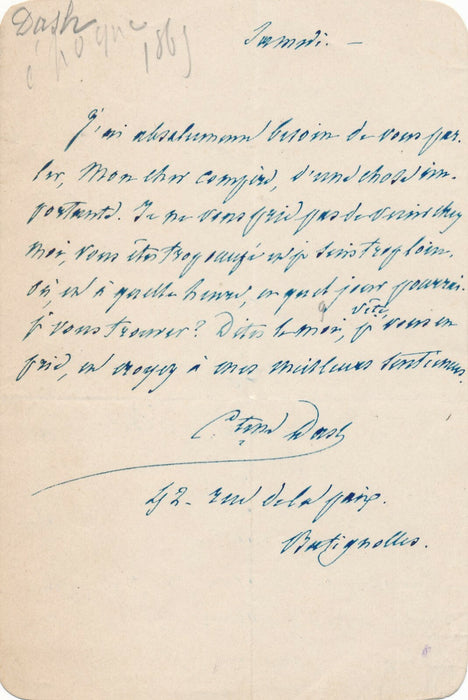 Dash
époque 1865
Samedi. —
J'ai absolument besoin de vous par-
ler, mon cher compère, d'une chose im-
portante. Je ne vous prie pas de venir chez
moi, vous êtes trop occupé et je suis trop loin.
Où, et à quelle heure, en quel jour pourrai-
je vous trouver? Dites le moi, vite, je vous en
prie, et croyez à mes meilleurs sentiments.
C.tesse Dash
42 - rue de la paix.
Batignolles.